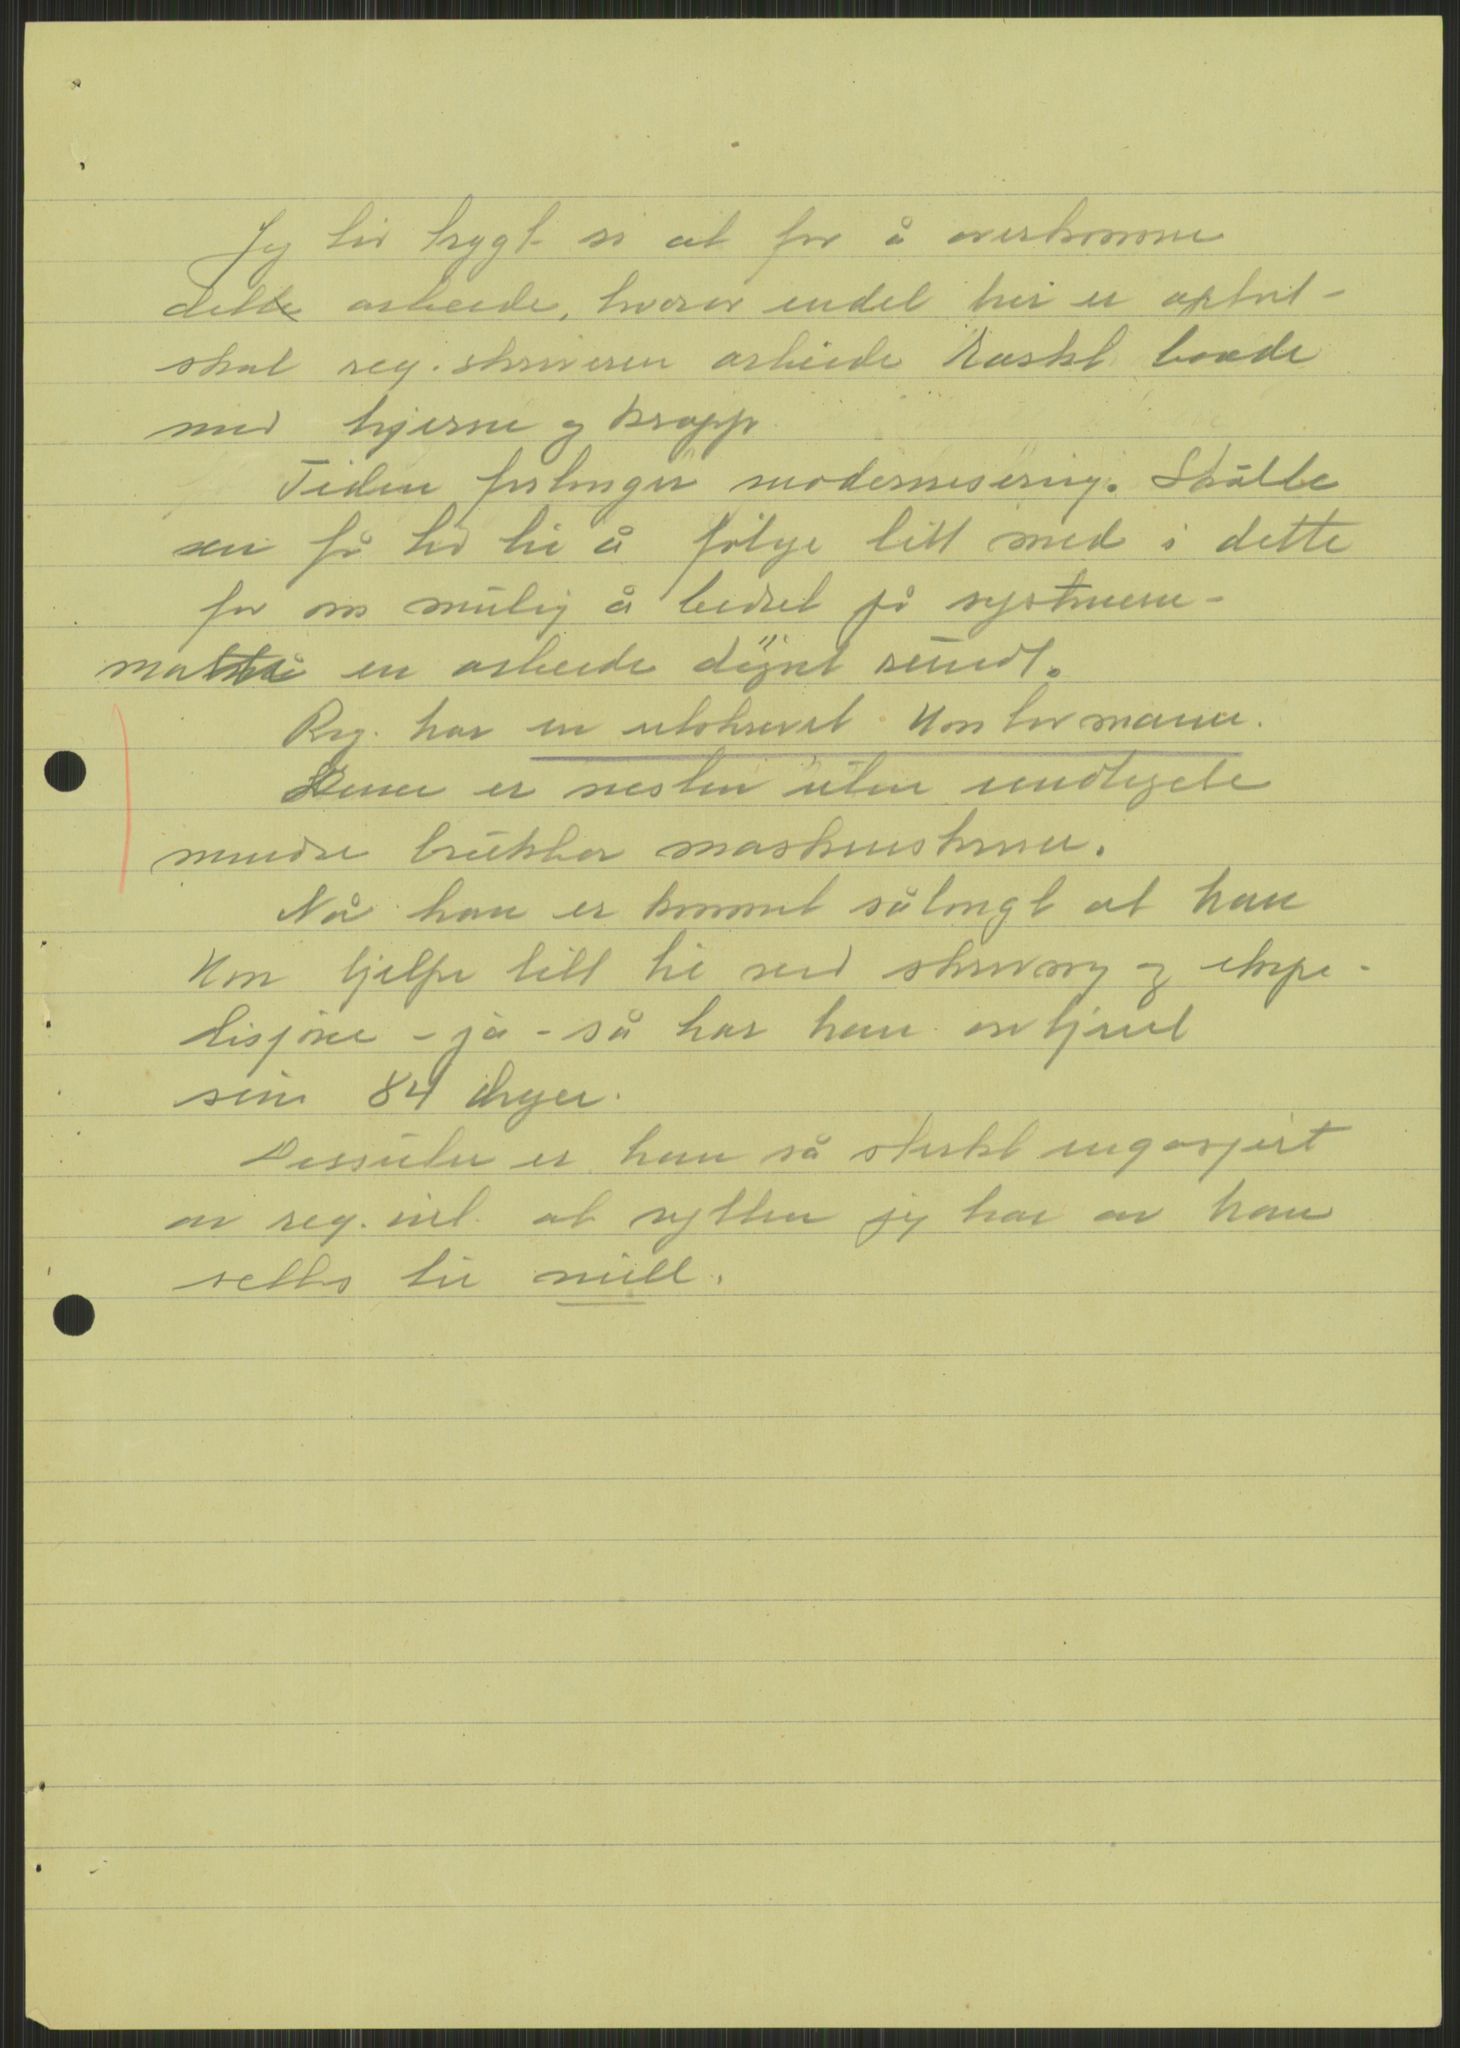 Jeg tør trygt si at for å overkomme
dette arbeide, hvorav endel her er opført -
skal reg. skriveren arbeide raskt baade
med hjerne og kropp.
Tiden forlanger modernisering. Skulle
en få tid til å følge litt med i dette
for om mulig å bedret på systeme-
en arbeide døgnet rundt.
Reg. har en utskrevet Kontormann.
Denne er nesten uten undtagelse
mindre brukbar maskinskriver.
Når han er kommet sålangt at han
kan hjelpe litt til med skriving og ekspe-
disjone - ja - så har han avtjent
sine 84 dager.
Dessuten er han så sterkt engasjert
av reg. int. at nytten jeg har av han
settes til null.